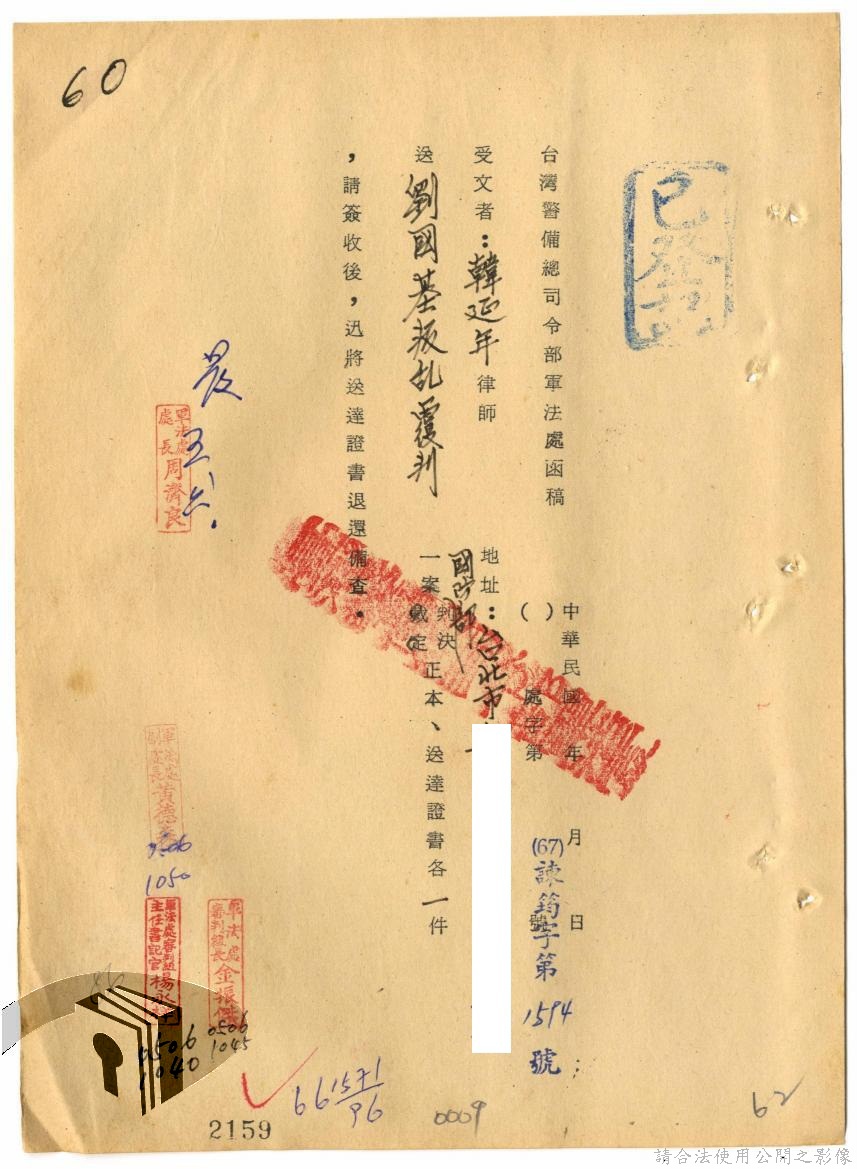 60
已發
台灣警備總司令部軍法處函稿
中華民國 年 月 日
( ) 處字第 號
(67)諫筠字第1594號
受文者：韓延年律師
地址：台北市
送劉國基叛乱覆判
國防部
一案判決
裁定
正本、送達證書各一件
，請簽收後，迅將送達證書退還備查。
發
軍法處
處長周濟良
軍法處
副處長黃德
0506
1050
軍法處審判組長金振
0506
1045
軍法處審判組
主任書記官楊永
0506
1040
661571/96
2159
0009
62
請合法使用公開之影像